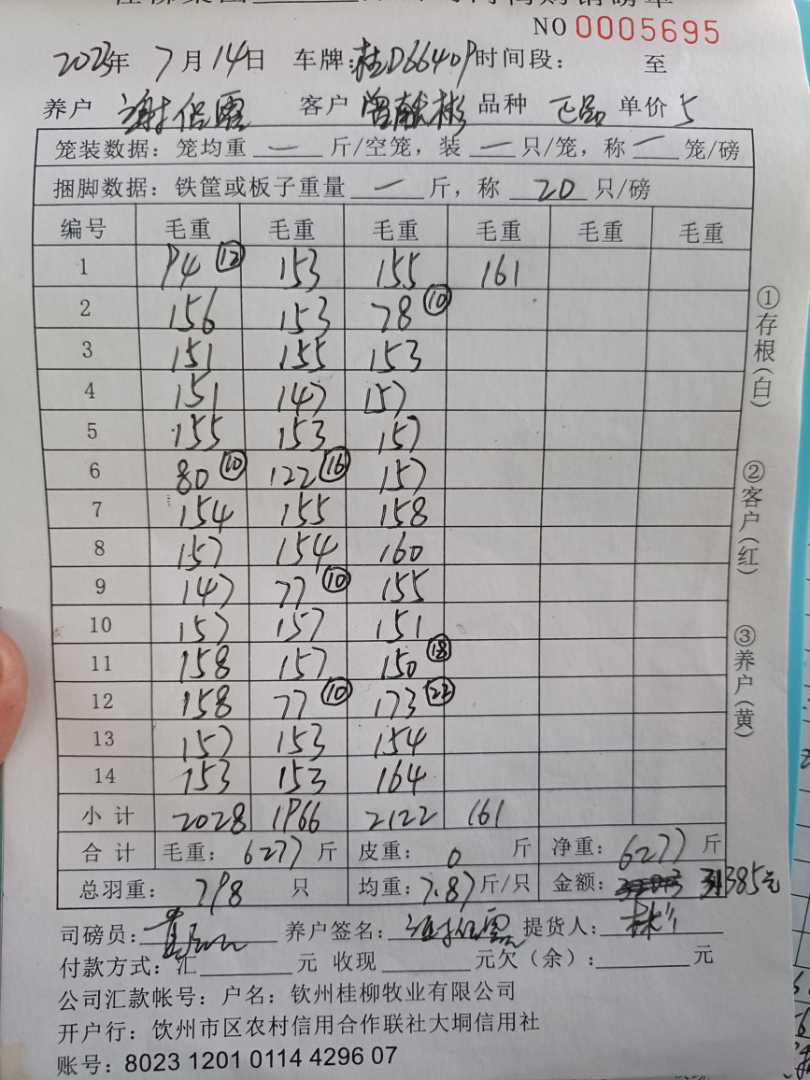 NO 0005695
2023年 7月14日 车牌:桂D66409 时间段: 至
养户 谢保霞 客户 曾献彬 品种 正品 单价 5
笼装数据: 笼均重 一 斤/空笼, 装 一 只/笼, 称 一 笼/磅
捆脚数据: 铁筐或板子重量 一 斤, 称 20 只/磅
编号 毛重 毛重 毛重 毛重 毛重 毛重
1 94 ⑫ 153 155 161
2 156 153 78 ⑩
3 151 155 153
4 151 147 157
5 155 153 157
6 80 ⑩ 122 ⑯ 157
7 154 155 158
8 157 154 160
9 147 77 ⑩ 155
10 157 157 151
11 158 157 150 ⑱
12 158 77 ⑩ 173 ㉒
13 157 153 154
14 153 153 164
小计 2028 1966 2122 161
合计 毛重: 6277 斤 皮重: 0 斤 净重: 6277 斤
总羽重: 798 只 均重: 7.87 斤/只 金额: 31385元
司磅员: 养户签名: 谢保霞 提货人:
付款方式: 汇 元 收现 元欠(余): 元
公司汇款帐号: 户名: 钦州桂柳牧业有限公司
开户行: 钦州市区农村信用合作联社大垌信用社
账号: 8023 1201 0114 4296 07
①存根(白)
②客户(红)
③养户(黄)